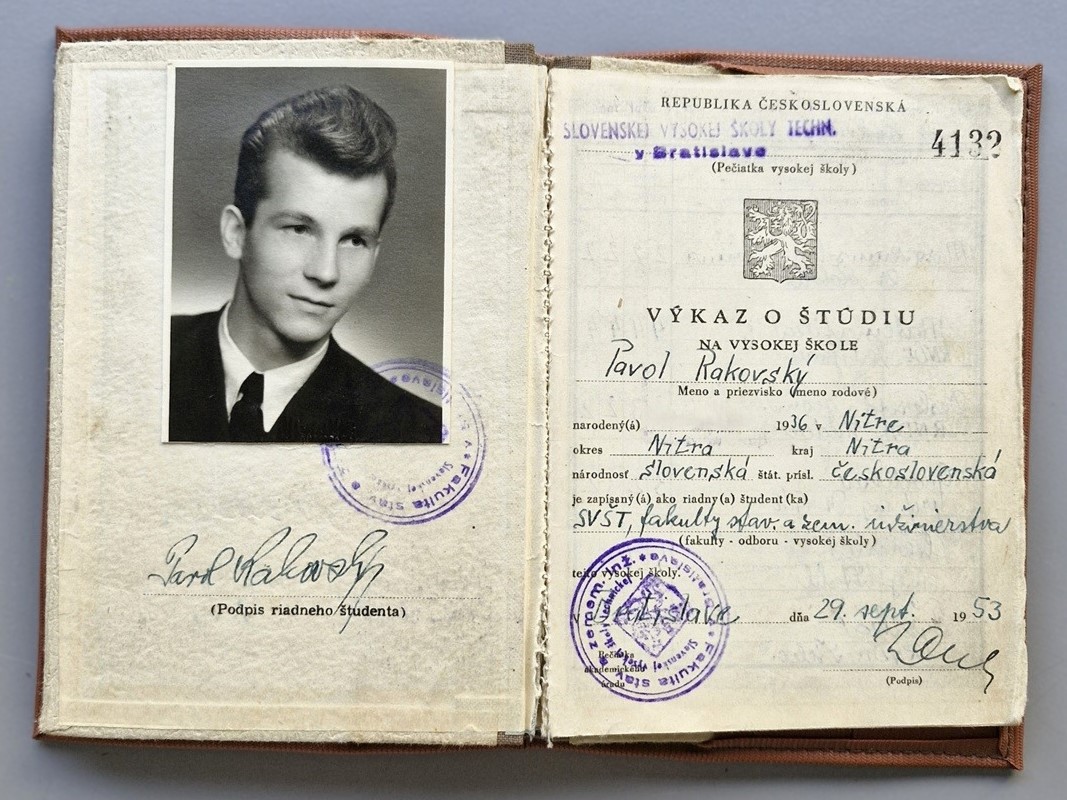 Pavol Rakovský
(Podpis riadneho študenta)
Fakulta stav. a
REPUBLIKA ČESKOSLOVENSKÁ
SLOVENSKEJ VYSOKEJ ŠKOLY TECHN.
v Bratislave
4132
(Pečiatka vysokej školy)
VÝKAZ O ŠTÚDIU
NA VYSOKEJ ŠKOLE
Pavol Rakovský
Meno a priezvisko (meno rodové)
narodený(á) 1936 v Nitre
okres Nitra kraj Nitra
národnosť slovenská štát. prísl. československá
je zapísaný(á) ako riadny(a) študent(ka)
SVŠT, fakulty stav. a zem. inžinierstva
(fakulty - odboru - vysokej školy)
tejto vysokej školy.
v Bratislave dňa 29. sept. 1953
Pečiatka
akademického
úradu
(Podpis)
Fakulta stav. a zemem. inž. Bratislave
Slovenskej vysokej školy technickej